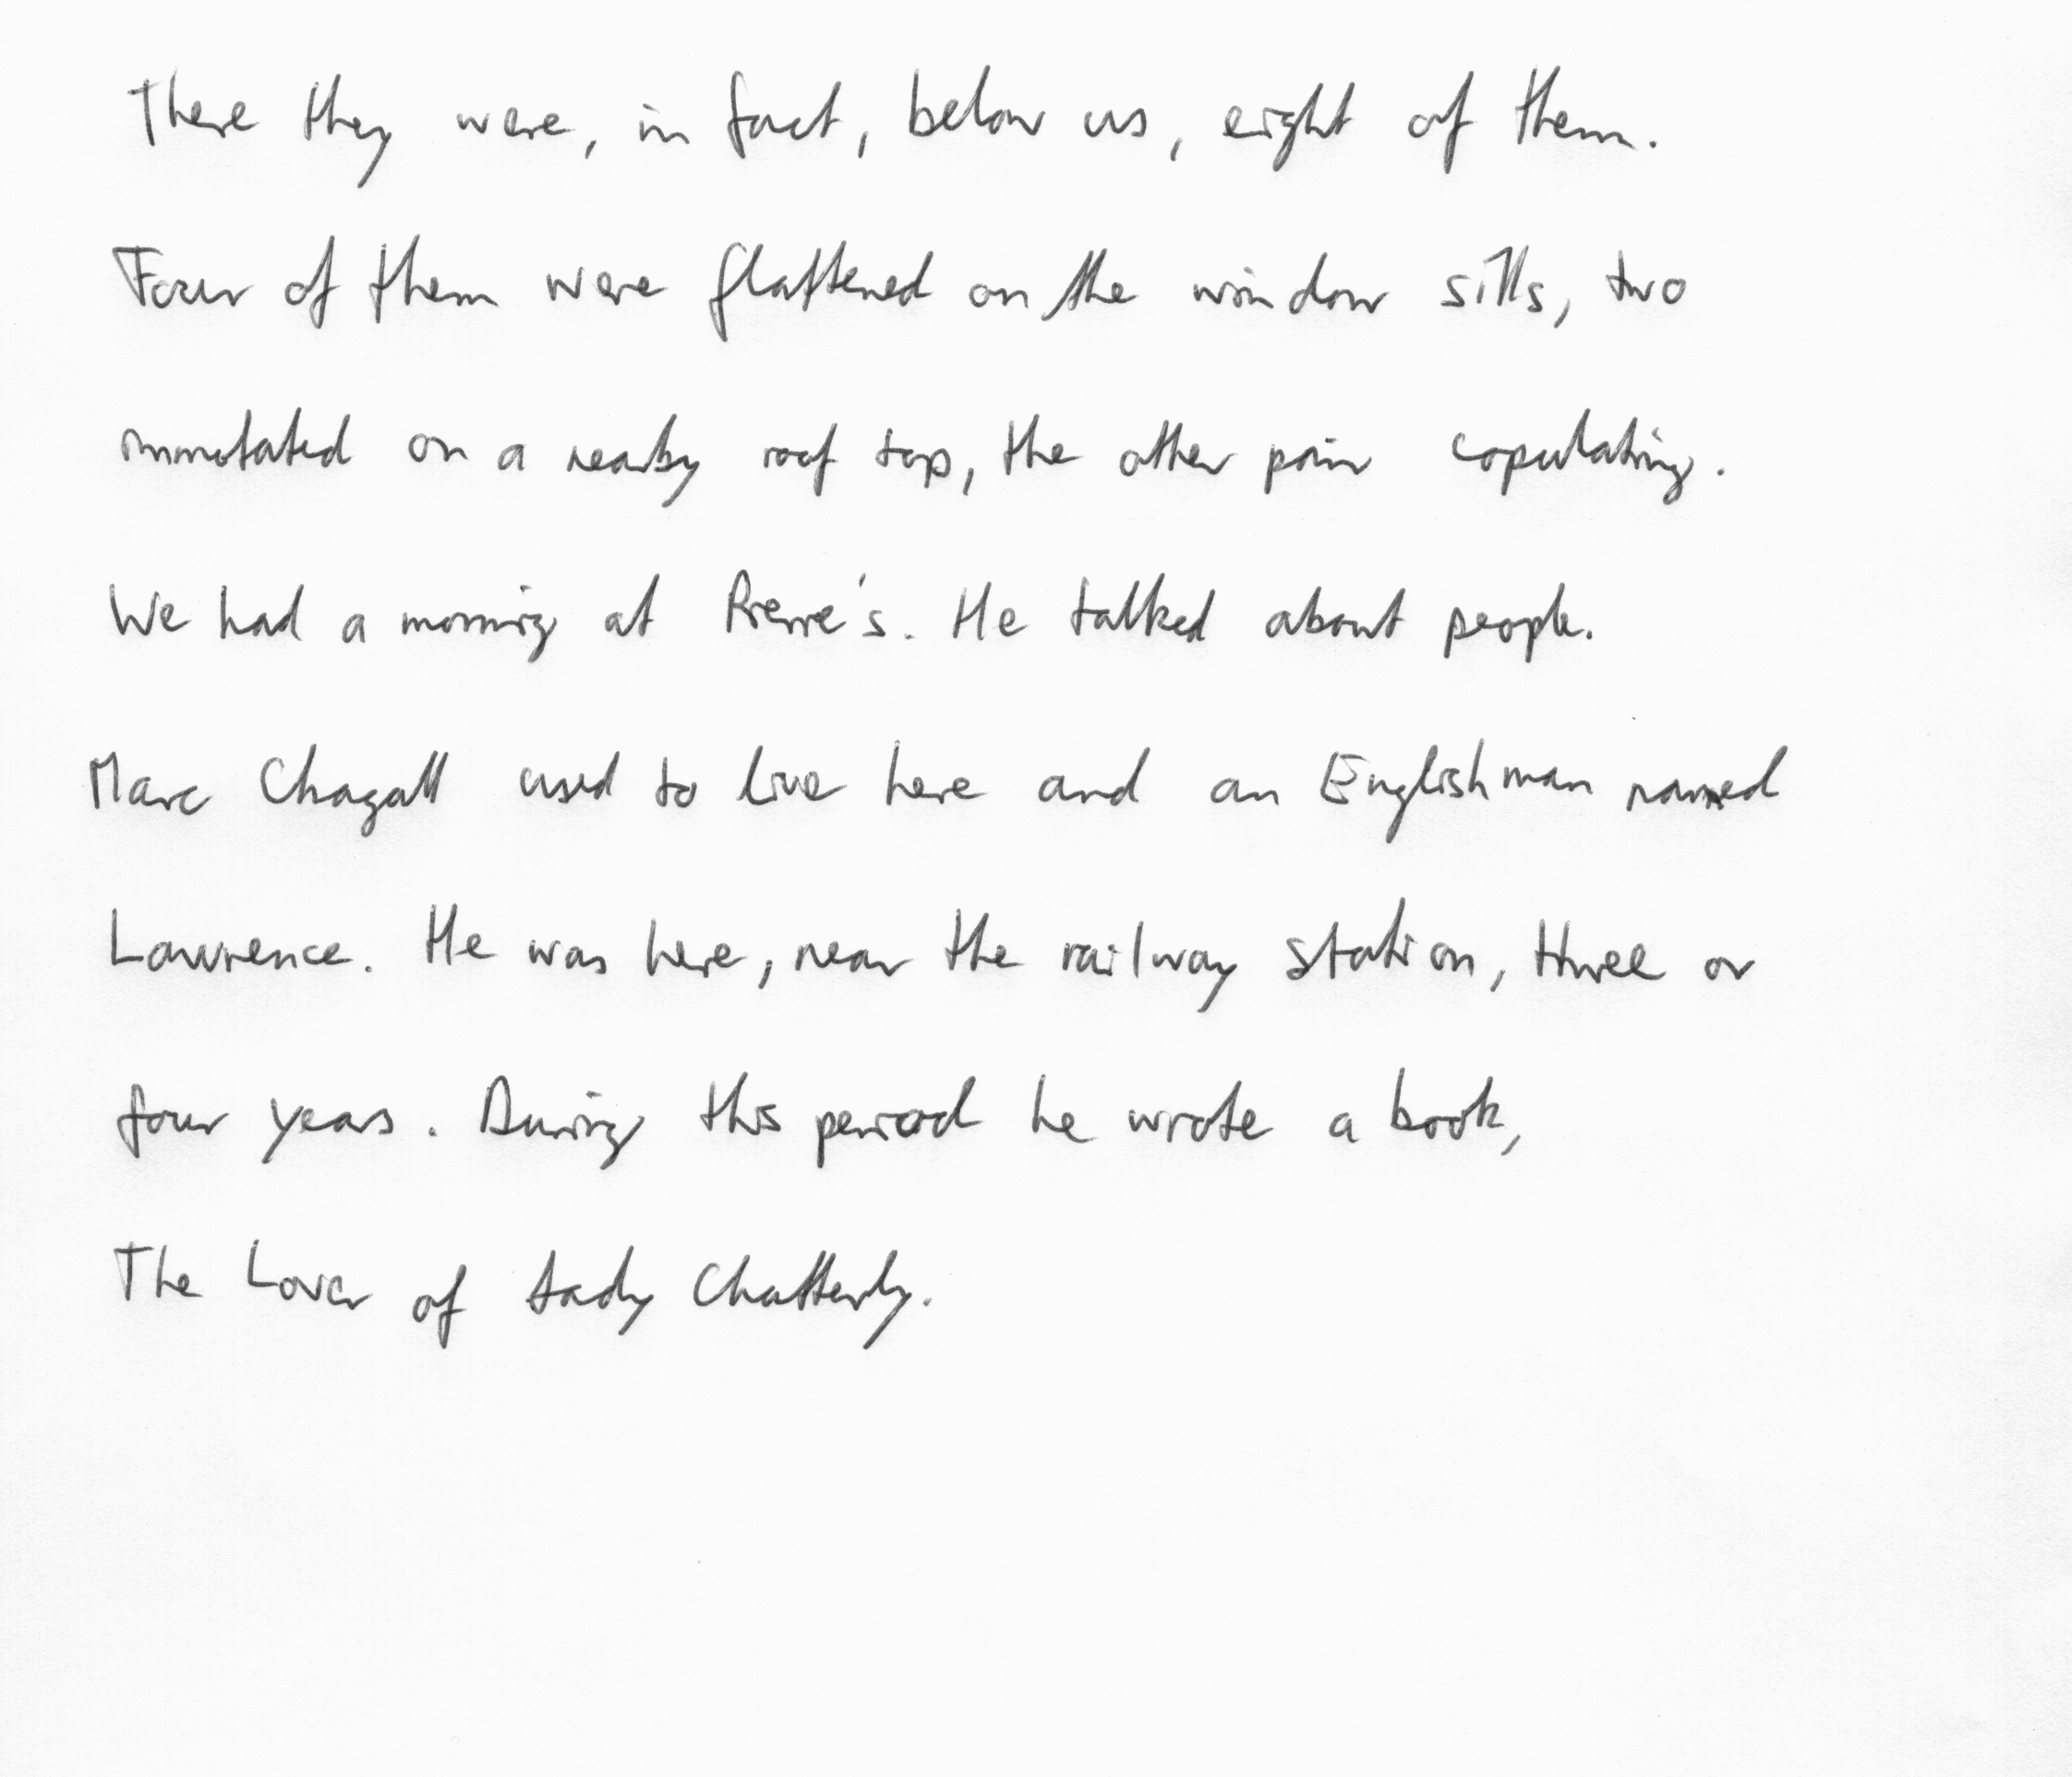 There they were, in fact, below us, eight of them.
Four of them were flattened on the window sills, two
on a nearby roof top, the other pair copulating.
We had a morning at Pierre's. He talked about people.
Marc Chagall used to live here and an Englishman named
Lawrence. He was here, near the railway station, three or
four years. During this period he wrote a book,
The Lover of Lady Chatterly.